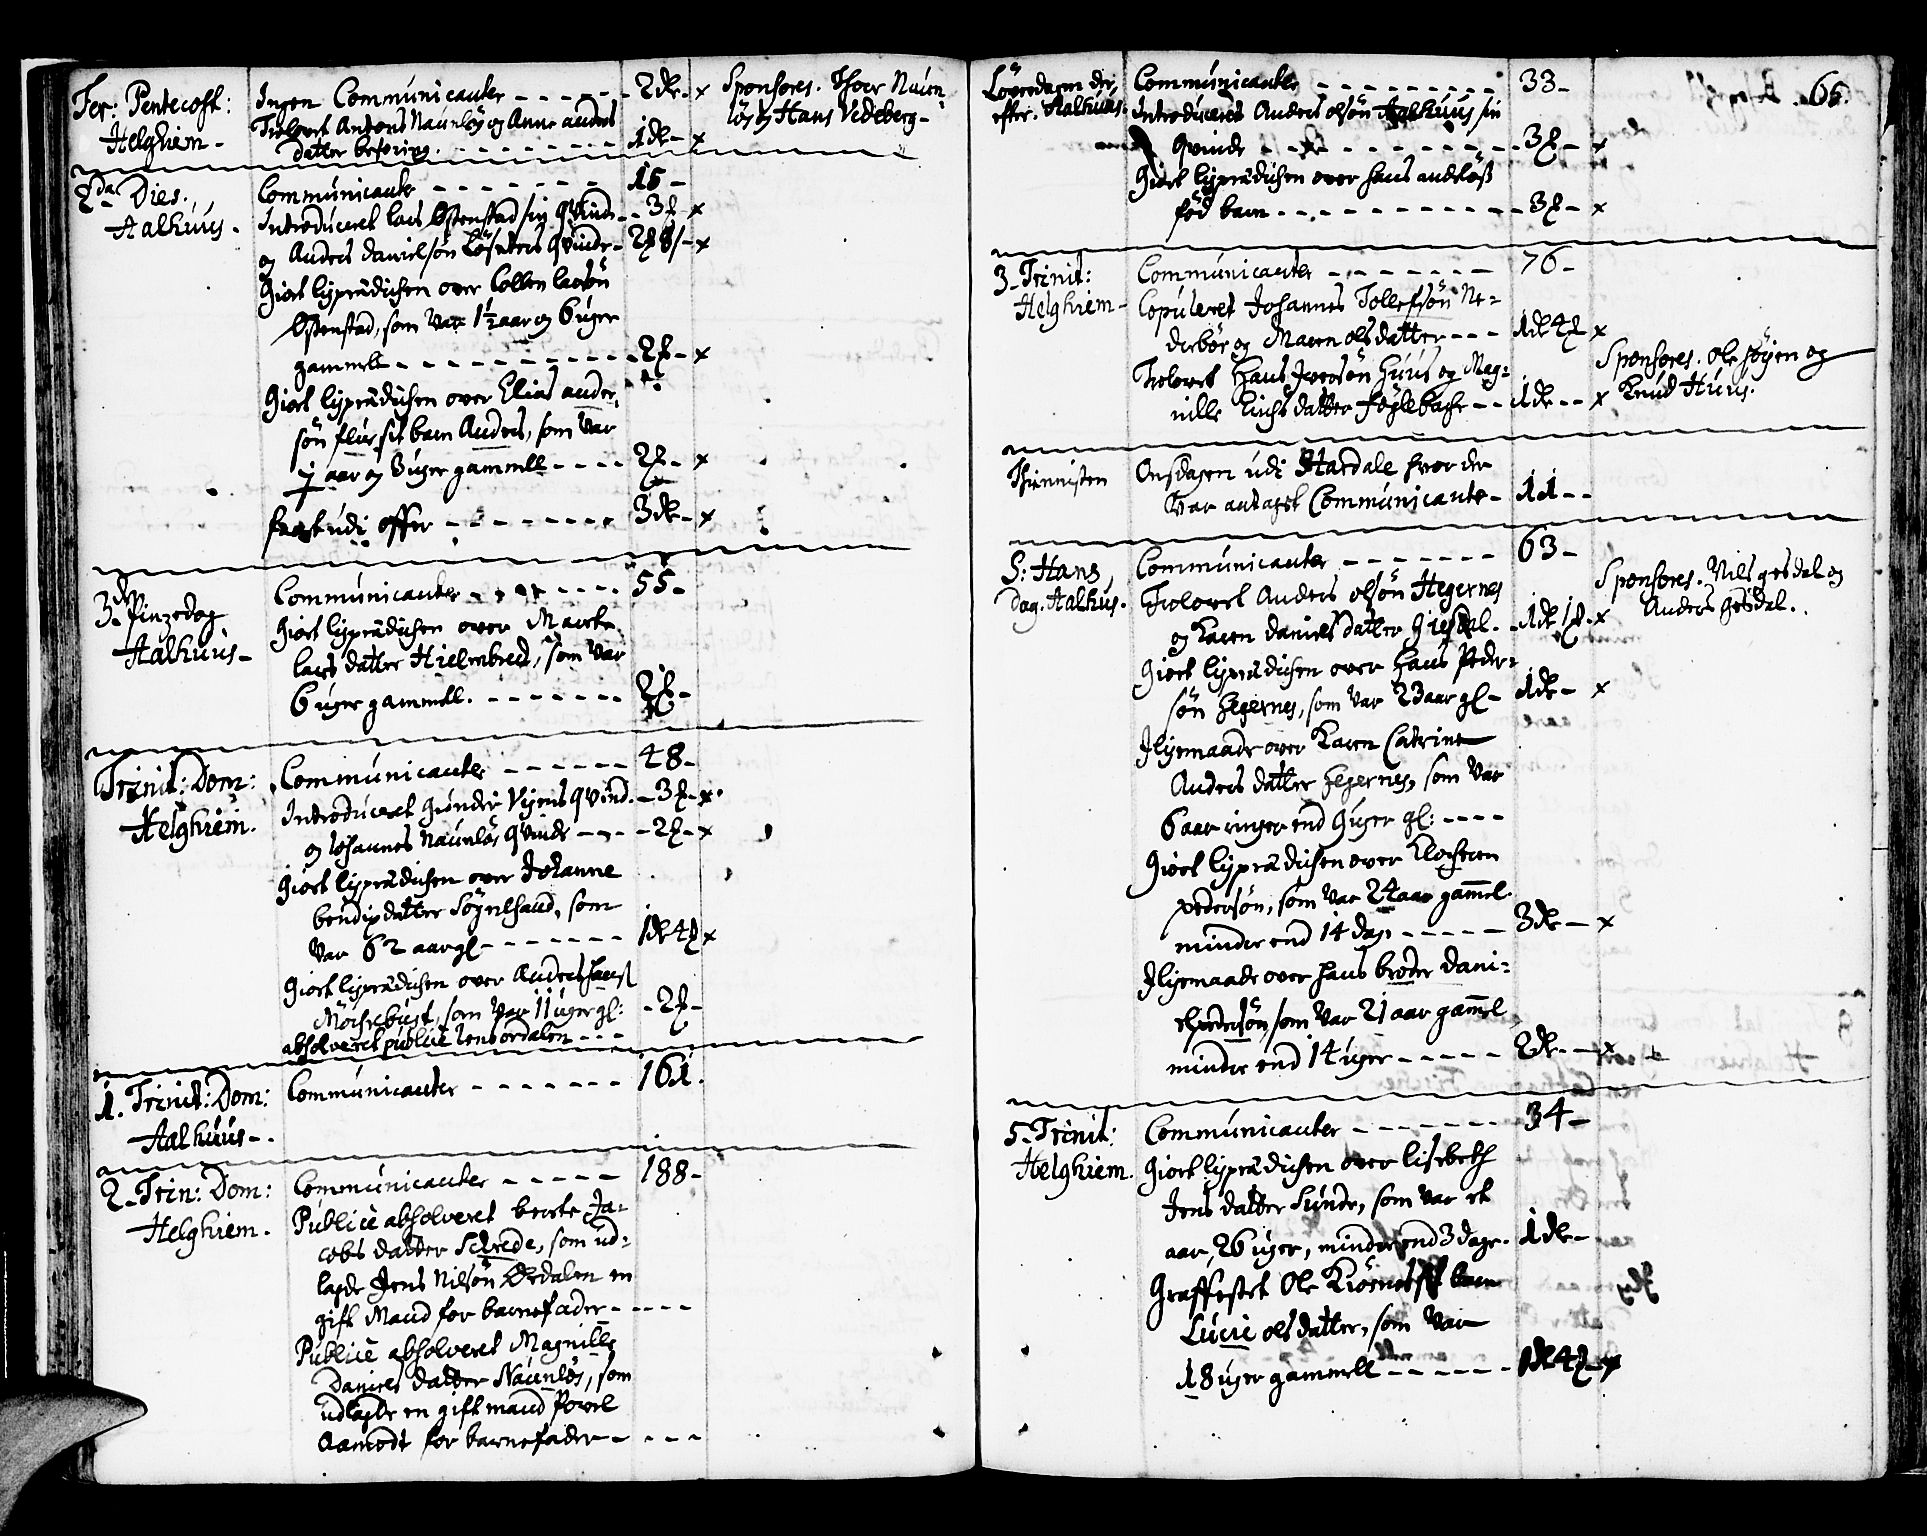 Fer: Pentecost:
Helghiem -
Ingen Communicanter - - - - - 2dr - x
Trolovet Anders Naunløs og Anne anders
datter beføring. - - - - - - - 1dr - x
Sponsores. Thoer Naun
løs og Hans Vedeberg -
2da Dies.
Aalhuus -
Communicanter - - - - - - - 15 -
Introduceret lars Østenstad sin Qvinde - - 3 - x
og Anders danielsøn Løseters Qvinde - 2 8 - x
Giort ligprædichen over Collben larsøn
Østenstad, som var 1½ aar og 6 uger
gammell - - - - - - - - - - 2 - x
Giort ligprædichen over Elias ander,
søn flur sit barn Anders, som var
aar og 3 uger gammell - - - - 2 - x
fratudi offer - - - - - - - - 3dr - x
3de Pinzedag
Aalhuus -
Communicanter - - - - - - - 55 -
Giort ligprædichen over Marte
lars datter Hielmbred, som var
6 uger gammell. - - - - - - - 2 -
Trinit: Dom:
Helghiem.
Communicanter - - - - - - 48 -
Introduceret Gunder Vigens Qvind. - 3 - x
og Johannes Naunløs Qvinde - - - - 2 - x
Giort ligprædichen over Johanne
bendixdatter Søgnesand, som
var 62 aar gl - - - - - - - 1dr 4 x
Giort ligprædichen over Anders hanss
som var 11 uger gl: - 2 -
absolveret publicè Jens ordalen - - -
1. Trinit: Dom:
Aalhuus - .
Communicanter - - - - - - - 161.
2 - Trin: Dom:
Helghiem.
Communicanter - - - - - 188 -
Publicè absolveret berte Ja-
cobs datter Schrede, som ud-
lagde Jens Nilsøn Ordalen en
gift Mand for barnefader - - - - -
Publicè absolveret Magnille
Daniels datter Naunløs, som
udlagde en gift mand Powel
Aamodt for barnefader - - - -
65.
Løverdagen der
efter. Aalhuus.
Communicanter - - - - - - - - - 33 -
Introduceret Anders olsøn Aalhuus sin
Qvinde - - - - - - - - - - 3 - x
Giort ligprædichen over hans andeløß
fød barn - - - - - - - - - - 3 - x
3 - Trinit:
Helghiem -
Communicanter - - - - - - - - 76 -
Copuleret Johannes Tollefsøn Ne-
derbøe og Maren olsdatter - - - 1dr 4 x
Trolovet Hans Iversøn Huus og Mag-
nille Lüchs datter Føglebache - - 1dr - - x
Sponsores. Ole høyen og
Knud Huus.
Onsdagen udi Stardale hvor der
var antaget Communicanter - 11 - -
S: Hans
Dag. Aalhus.
Communicanter - - - - - - - 63 -
Trolovet Anders olsøn Hegernes
og Karen daniels datter giesdal. - 1dr 1 - x
Sponsores. Nils gesdal og
Anders gesdal.
Giort ligprædichen over Hans Peder-
søn Hegernes, som var 23 aar gl - 1dr - x
Iligemaade over Karen Catrine
Anders datter Hegernes, som var
6 aar ringer end 9 uger gl: - - - -
Giort ligprædichen over
pedersøn, som var 24 aar gammel
minder end 14 dage - - - - - 3dr - x
Iligemaade over hans broder dani-
el pedersøn, som var 21 aar gammel
minder end 14 uger - - - - - 2dr - - x
5 - Trinit:
Helghiem.
Communicanter - - - - - - - 34 -
Giort ligprædichen over lisebeth
Jens datter Sunde, som var et
aar, 26 uger, minder end 3 dage. 1dr -
Graffæstet Ole barn
Lucie olsdatter, som var
18 uger gammell - - - - - - 1dr 4 - x